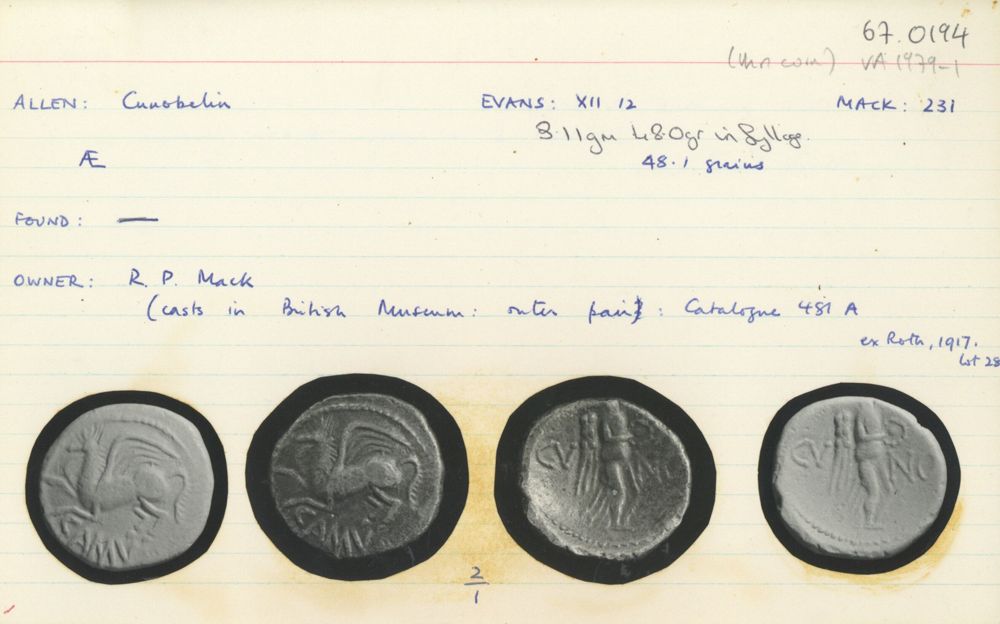 67.0194
(this coin) VA 1979-1
ALLEN: Cunobelin EVANS: XII 12 MACK: 231
3.11gm 48.0gr in Sylloge.
Æ 48.1 grains
FOUND: —
OWNER: R. P. Mack
(casts in British Museum: outer pair): Catalogue 481 A
ex Roth, 1917.
Lot 28
CAMV
CAMV
CV NO
CV NO
2
1